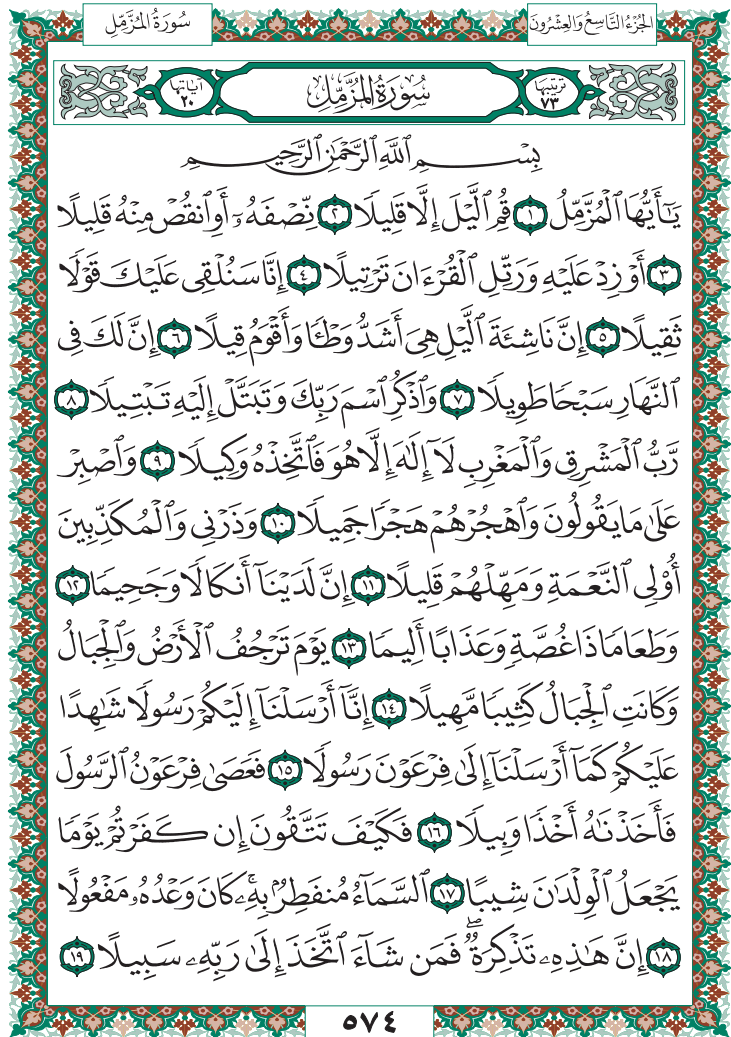 الجُزْءُ التَّاسِعُ وَالعِشْرُونَ
سُورَةُ المُزَّمِّل
ترتيبها ٧٣
سُورَةُ المُزَّمِّل
آياتها ٢٠
بِسۡمِ ٱللَّهِ ٱلرَّحۡمَٰنِ ٱلرَّحِيمِ
يَٰٓأَيُّهَا ٱلۡمُزَّمِّلُ ١ قُمِ ٱلَّيۡلَ إِلَّا قَلِيلٗا ٢ نِّصۡفَهُۥٓ أَوِ ٱنقُصۡ مِنۡهُ قَلِيلًا
٣ أَوۡ زِدۡ عَلَيۡهِ وَرَتِّلِ ٱلۡقُرۡءَانَ تَرۡتِيلًا ٤ إِنَّا سَنُلۡقِي عَلَيۡكَ قَوۡلٗا
ثَقِيلًا ٥ إِنَّ نَاشِئَةَ ٱلَّيۡلِ هِيَ أَشَدُّ وَطۡـٔٗا وَأَقۡوَمُ قِيلًا ٦ إِنَّ لَكَ فِي
ٱلنَّهَارِ سَبۡحٗا طَوِيلٗا ٧ وَٱذۡكُرِ ٱسۡمَ رَبِّكَ وَتَبَتَّلۡ إِلَيۡهِ تَبۡتِيلٗا ٨
رَّبُّ ٱلۡمَشۡرِقِ وَٱلۡمَغۡرِبِ لَآ إِلَٰهَ إِلَّا هُوَ فَٱتَّخِذۡهُ وَكِيلٗا ٩ وَٱصۡبِرۡ
عَلَىٰ مَا يَقُولُونَ وَٱهۡجُرۡهُمۡ هَجۡرٗا جَمِيلٗا ١٠ وَذَرۡنِي وَٱلۡمُكَذِّبِينَ
أُوْلِي ٱلنَّعۡمَةِ وَمَهِّلۡهُمۡ قَلِيلًا ١١ إِنَّ لَدَيۡنَآ أَنكَالٗا وَجَحِيمٗا ١٢
وَطَعَامٗا ذَا غُصَّةٖ وَعَذَابًا أَلِيمٗا ١٣ يَوۡمَ تَرۡجُفُ ٱلۡأَرۡضُ وَٱلۡجِبَالُ
وَكَانَتِ ٱلۡجِبَالُ كَثِيبٗا مَّهِيلًا ١٤ إِنَّآ أَرۡسَلۡنَآ إِلَيۡكُمۡ رَسُولٗا شَٰهِدًا
عَلَيۡكُمۡ كَمَآ أَرۡسَلۡنَآ إِلَىٰ فِرۡعَوۡنَ رَسُولٗا ١٥ فَعَصَىٰ فِرۡعَوۡنُ ٱلرَّسُولَ
فَأَخَذۡنَٰهُ أَخۡذٗا وَبِيلٗا ١٦ فَكَيۡفَ تَتَّقُونَ إِن كَفَرۡتُمۡ يَوۡمٗا
يَجۡعَلُ ٱلۡوِلۡدَٰنَ شِيبًا ١٧ ٱلسَّمَآءُ مُنفَطِرُۢ بِهِۦۚ كَانَ وَعۡدُهُۥ مَفۡعُولًا
١٨ إِنَّ هَٰذِهِۦ تَذۡكِرَةٞۖ فَمَن شَآءَ ٱتَّخَذَ إِلَىٰ رَبِّهِۦ سَبِيلًا ١٩
٥٧٤